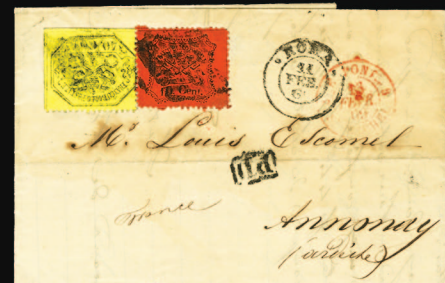 ROMA
11
FEB
10 Cent.
Mr. Louis Escomel
PD
France
Annonay
(ardèche)